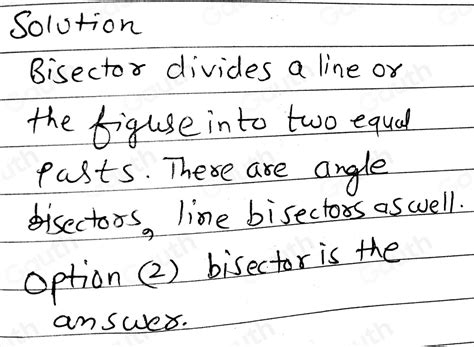 Solution
Bisector divides a line or
the figure into two equal
parts. There are angle
bisectors, line bisectors as well.
option (2) bisector is the
answer.